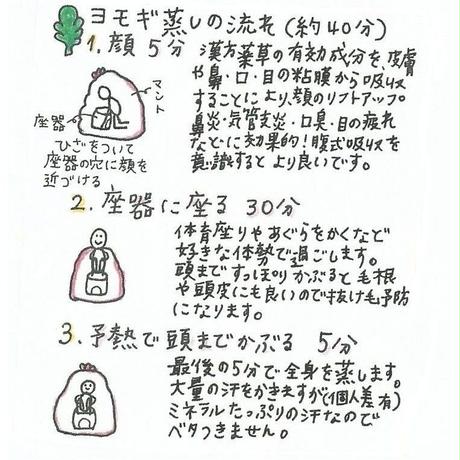 ヨモギ蒸しの流れ(約40分)
1. 顔 5分
マント
座器
ひざをついて
座器の穴に顔を
近づける
漢方薬草の有効成分を、皮膚
や鼻・口・目の粘膜から吸収
することにより、顔のリフトアップ。
鼻炎・気管支炎・口臭・目の疲れ
などに効果的!腹式吸収を
意識するとより良いです。
2. 座器に座る 30分
体育座りやあぐらをかくなど
好きな体勢で過ごします。
頭まですっぽりかぶると毛根
や頭皮にも良いので抜け毛予防
になります。
3. 予熱で頭までかぶる 5分
最後の5分で全身を蒸します。
大量の汗をかきますが(個人差有)
ミネラルたっぷりの汗なので
ベタつきません。